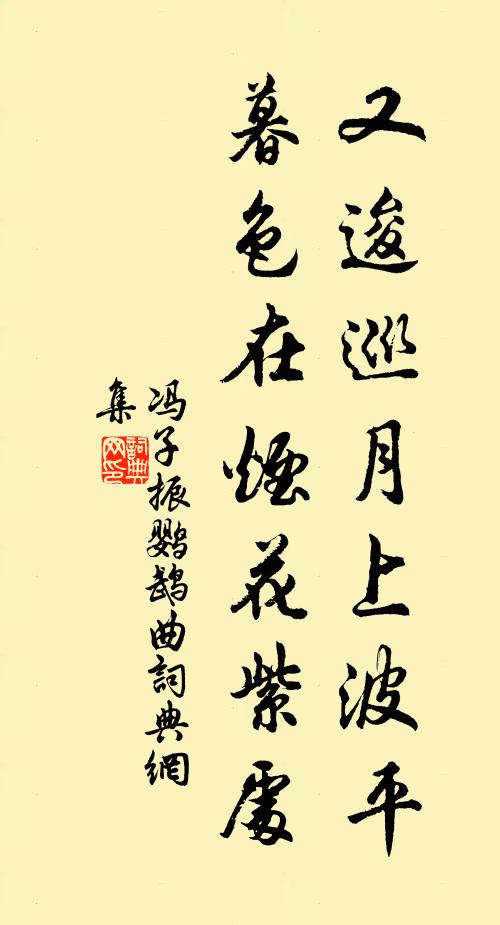 又逡巡月上波平
暮色在煙花紫處
冯子振鹦鹉曲詞典網
集
詞典网印